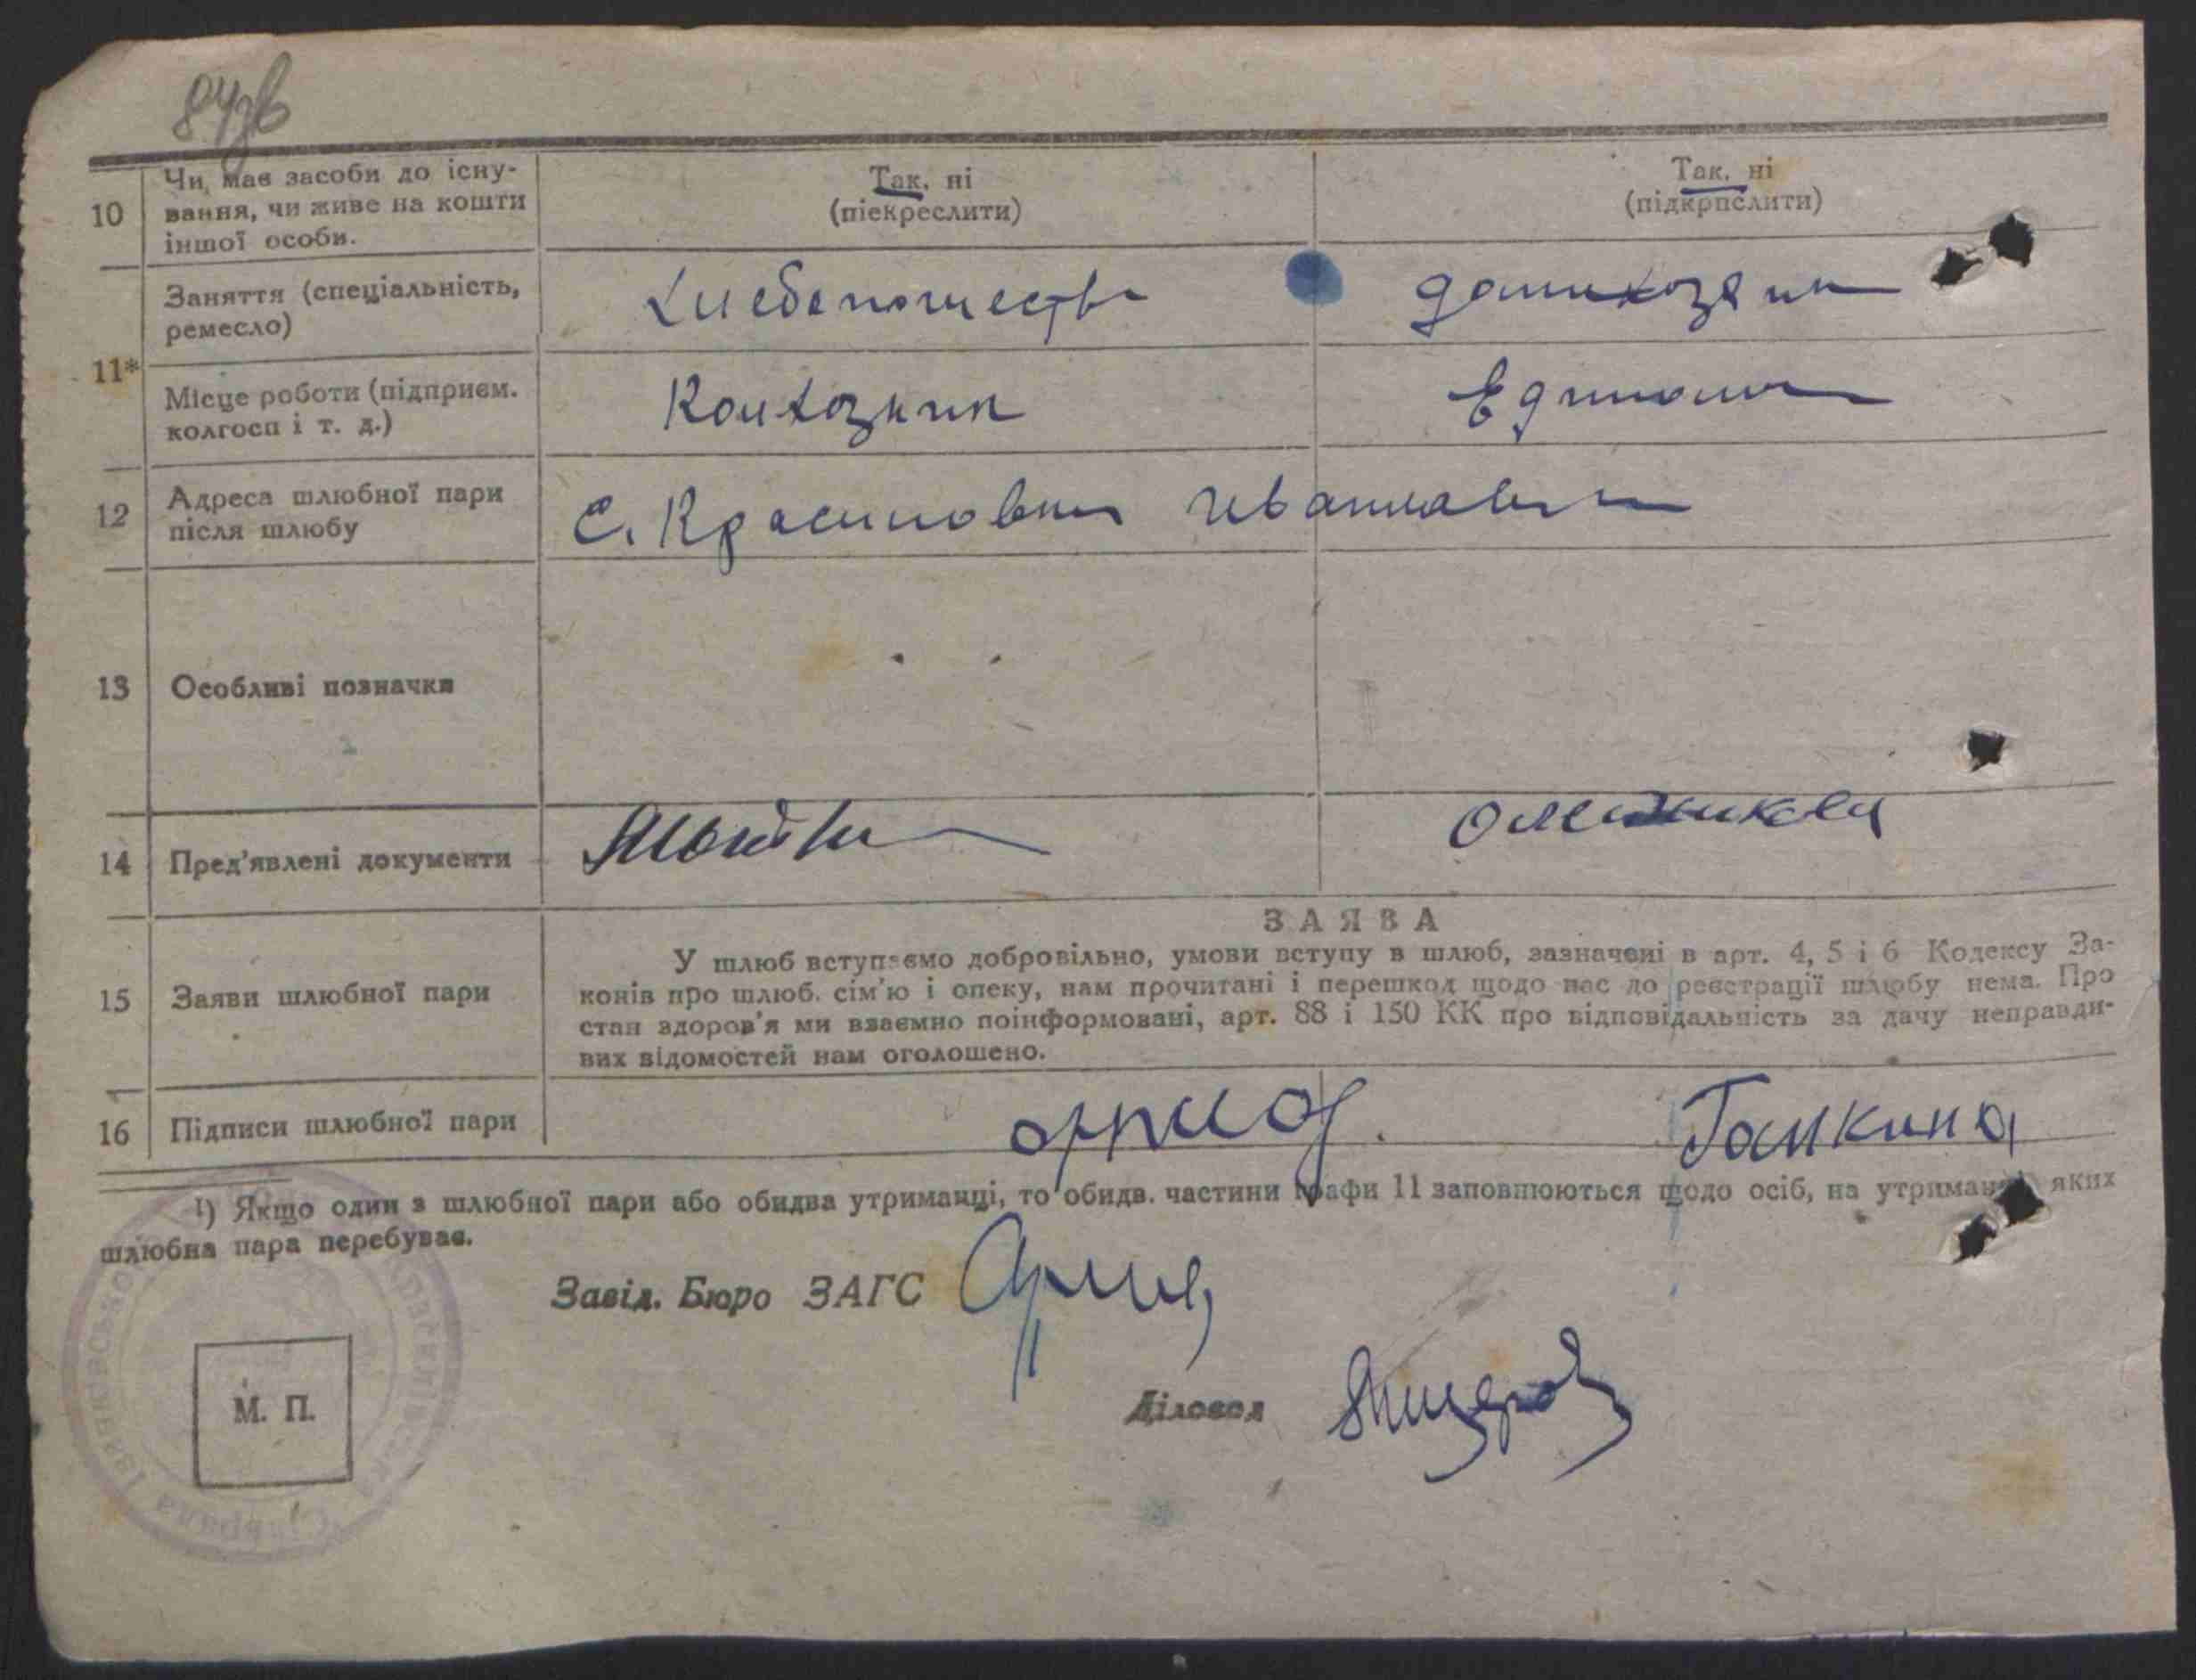 84зв
10
Чи має засоби до існу-
вання, чи живе на кошти
іншої особи.
Так, ні
(піекреслити)
Так, ні
(підкрпслити)
11*
Заняття (спеціальність,
ремесло)
Хлебопашеств
домохозяин
Місце роботи (підприєм.
колгосп і т. д.)
Колхозник
12
Адреса шлюбної пари
після шлюбу
с.
13
Особливі позначки
14
Пред'явлені документи
15
Заяви шлюбної пари
ЗАЯВА
У шлюб вступаємо добровільно, умови вступу в шлюб, зазначені в арт. 4, 5 і 6 Кодексу За-
конів про шлюб. сім'ю і опеку, нам прочитані і перешкод щодо нас до реєстрації шлюбу нема. Про
стан здоров'я ми взаємно поінформовані, арт. 88 і 150 КК про відповідальність за дачу неправди-
вих відомостей нам оголошено.
16
Підписи шлюбної пари
Галкина
¹) Якщо один з шлюбної пари або обидва утриманці, то обидв. частини графи 11 заповнюються щодо осіб, на утриманні яких
шлюбна пара перебуває.
Завід. Бюро ЗАГС
Діловод
М. П.